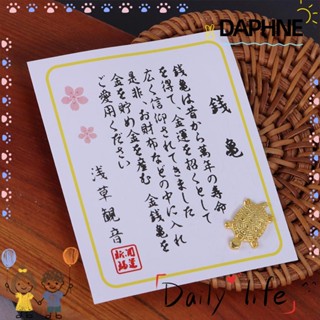 DAPHNE
銭亀
銭亀は昔から萬年の寿命
を得て、金運を招くとして
広く信仰されてきました
是非、お財布などの中に入れ
金を貯め金を産む 金銭亀を
ご愛用ください
浅草観音
Daily life